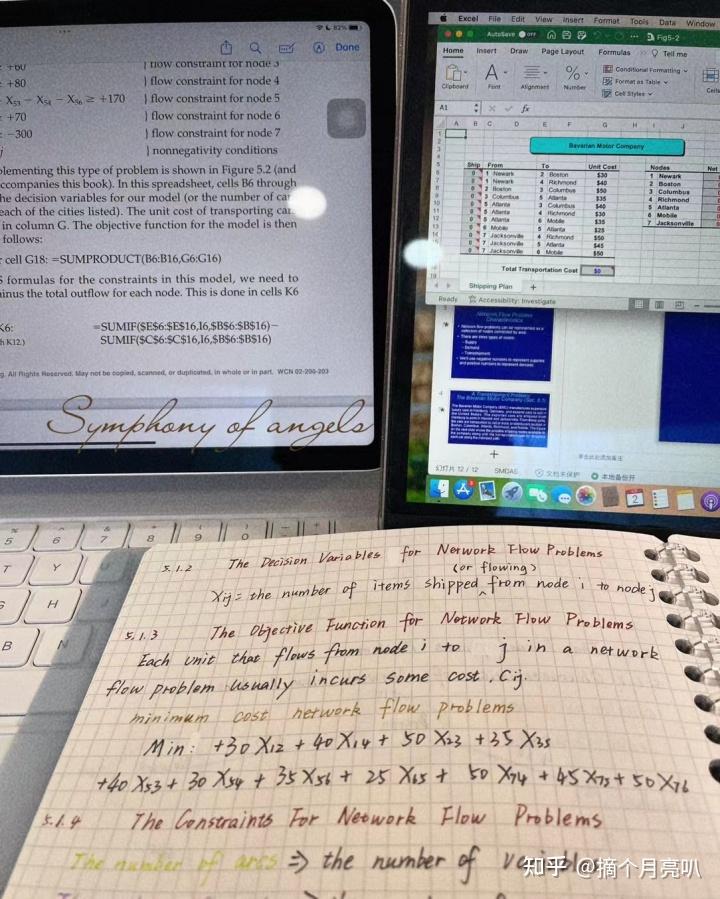 82%
Done
flow constraint for node 3
+80 } flow constraint for node 4
X53 − X54 − X56 ≥ +170 } flow constraint for node 5
+70 } flow constraint for node 6
−300 } flow constraint for node 7
} nonnegativity conditions
plementing this type of problem is shown in Figure 5.2 (and
ccompanies this book). In this spreadsheet, cells B6 through
he decision variables for our model (or the number of car
each of the cities listed). The unit cost of transporting car
in column G. The objective function for the model is then
follows:
r cell G18: =SUMPRODUCT(B6:B16,G6:G16)
formulas for the constraints in this model, we need to
inus the total outflow for each node. This is done in cells K6
K6: =SUMIF($E$6:$E$16,I6,$B$6:$B$16)−
h K12.) SUMIF($C$6:$C$16,I6,$B$6:$B$16)
g. All Rights Reserved. May not be copied, scanned, or duplicated, in whole or in part. WCN 02-200-203
Symphony of angels
Excel File Edit View Insert Format Tools Data Window
AutoSave OFF Fig5-2
Home Insert Draw Page Layout Formulas Tell me
Clipboard Font Alignment Number
Conditional Formatting
Format as Table
Cell Styles
Cells
A1 fx
A B C D E F G H I J
Bavarian Motor Company
Ship From To Unit Cost Nodes Net
0 1 Newark 2 Boston $30 1 Newark
0 1 Newark 4 Richmond $40 2 Boston
0 2 Boston 3 Columbus $50 3 Columbus
0 3 Columbus 5 Atlanta $35 4 Richmond
0 5 Atlanta 3 Columbus $40 5 Atlanta
0 5 Atlanta 4 Richmond $30 6 Mobile
0 5 Atlanta 6 Mobile $35 7 Jacksonville
0 6 Mobile 5 Atlanta $25
0 7 Jacksonville 4 Richmond $50
0 7 Jacksonville 5 Atlanta $45
0 7 Jacksonville 6 Mobile $50
Total Transportation Cost $0
Shipping Plan +
Ready Accessibility: Investigate
Network Flow Problem
Characteristics
A Transshipment Problem:
The Bavarian Motor Company
单击此处添加备注
幻灯片 12 / 12 SMDA6 文档未保护 本地备份开
5 6 7 8 9 0
T Y
H
B N
5.1.2 The Decision Variables for Network Flow Problems
(or flowing)
Xij = the number of items shipped ^ from node i to node j
5.1.3 The Objective Function for Network Flow Problems
Each unit that flows from node i to j in a network
flow problem usually incurs some cost, Cij.
minimum cost network flow problems
Min: +30 X12 + 40 X14 + 50 X23 + 35 X35
+40 X53 + 30 X54 + 35 X56 + 25 X65 + 50 X74 + 45 X75 + 50 X76
5.1.4 The Constraints For Network Flow Problems
The number of arcs ⇒ the number of variable
知乎 @摘个月亮叭